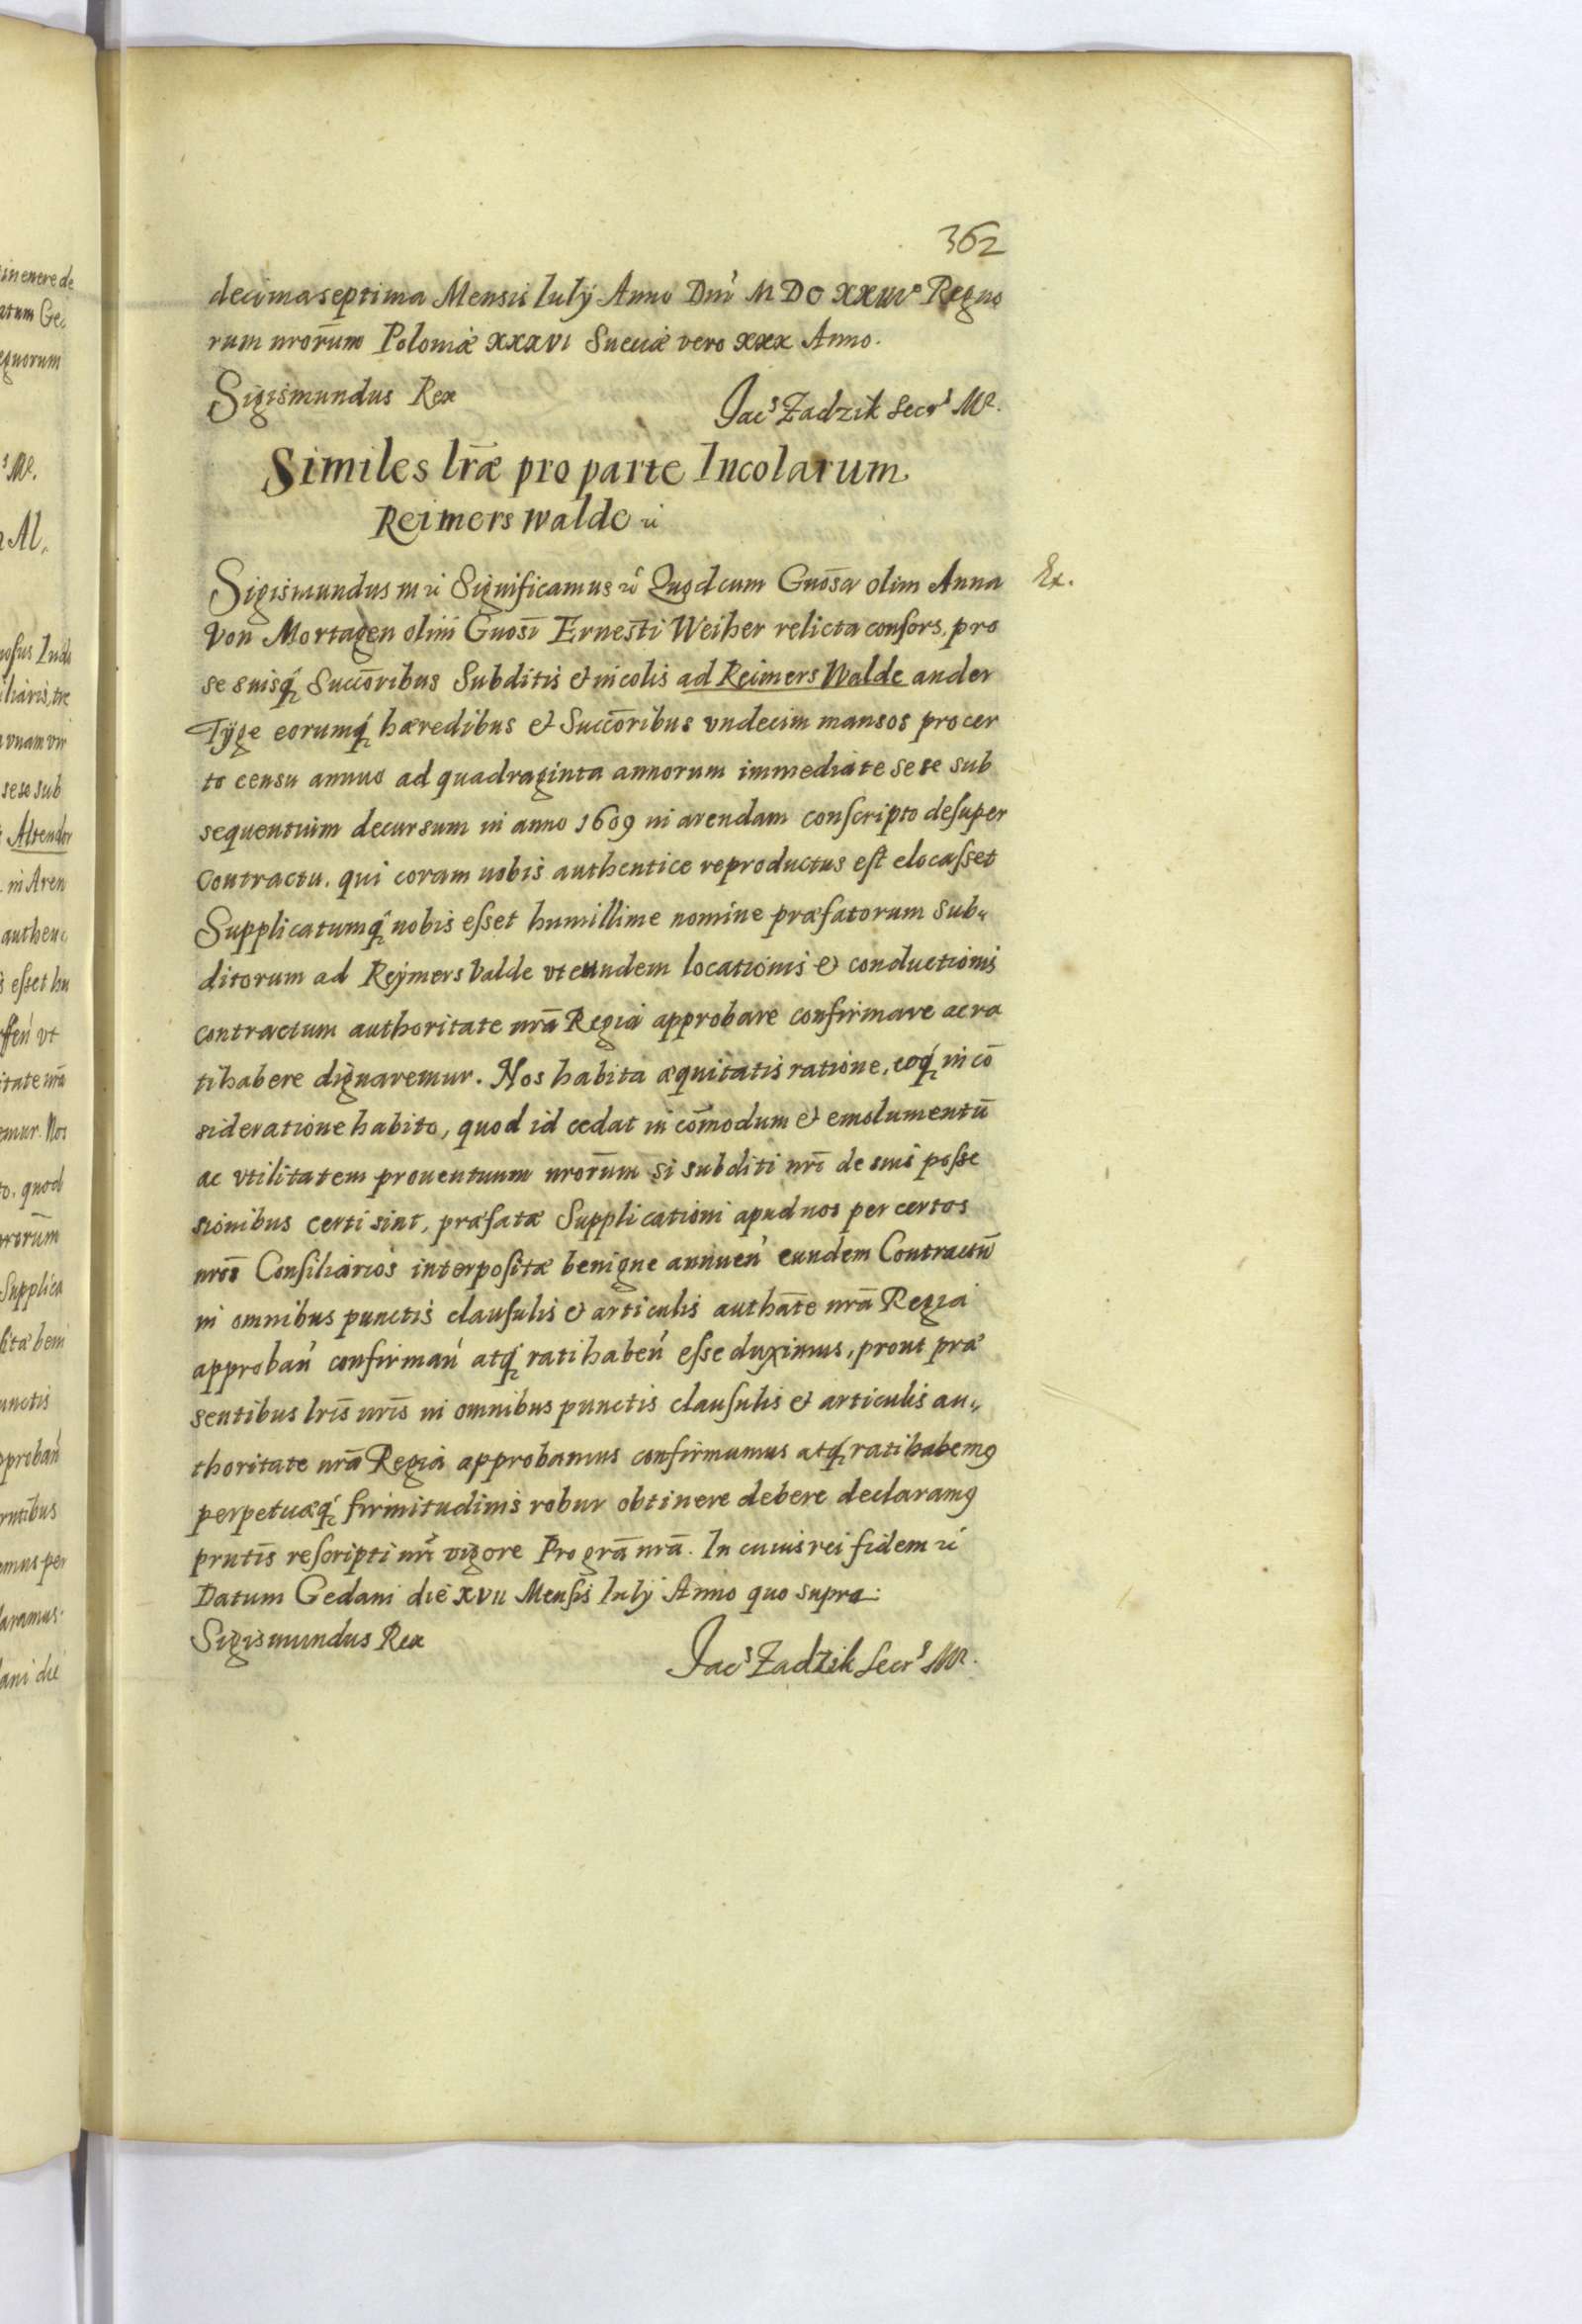 362
decima septima Mensis Iulÿ Anno Dnı̃ MDC XXIIIIº Regno
rum nrorum̃ Poloniæ XXXVI Sueciæ vero XXX Anno.
Sigismundus Rex
Jacˢ Zadzik Secrˢ Mꝛ.
Similes lr̃æ pro parte Incolarum
Reimerswalde
Sigismundus III Significamus Quod cum Gnosã olim Anna
Ex.
Von Mortagen olim Gnosı̃ Ernesti Weiher relicta consors, pro
se suisq́ Succorĩbus Subditis et incolis ad Reimers Walde an der
Tÿge eorumq́ hæredibus et Succorĩbus vndecim mansos pro cer
to censu annuo ad quadraginta annorum immediate sese sub
sequentium decursum in anno 1609 in arendam conscripto desuper
Contractu. qui coram nobis authentice reproductus est elocasset
Supplicatumq́ nobis esset humillime nomine præfatorum Sub„
ditorum ad Reÿmers Valde vt eundem locationis et conductionis
contractum authoritate nrã Regia approbare confirmare ac ra
tihabere dignaremur. Nos habita æquitatis ratione, eoq́ in cõ
sideratione habito, quod id cedat in com̃odum et emolumentũ
ac vtilitatem prouentuum nrorum̃ si subditi nrı̃ de suis posse
sionibus certi sint, præfatæ Supplicationi apud nos per certos
nros̃ Consiliarios interpositæ benigne annueń eundem Contractũ
in omnibus punctis clausulis et articulis authatẽ nrã Regia
approbań confirmań atq́ ratihabeń esse duximus, prout præ
sentibus lrı̃s nrı̃s in omnibus punctis clausulis et articulis au„
thoritate nrã Regia approbamus confirmamus atq́ ratihabemꝰ
perpetuæq́ firmitudinis robur obtinere debere declaramꝰ
pntiũs rescripti nrı̃ vigore Pro grã nrã. In cuius rei fidem
Datum Gedani die XVII Mensis Iulÿ Anno quo supra:
Sigismundus Rex
Jacˢ Zadzik Secrˢ Mꝛ.